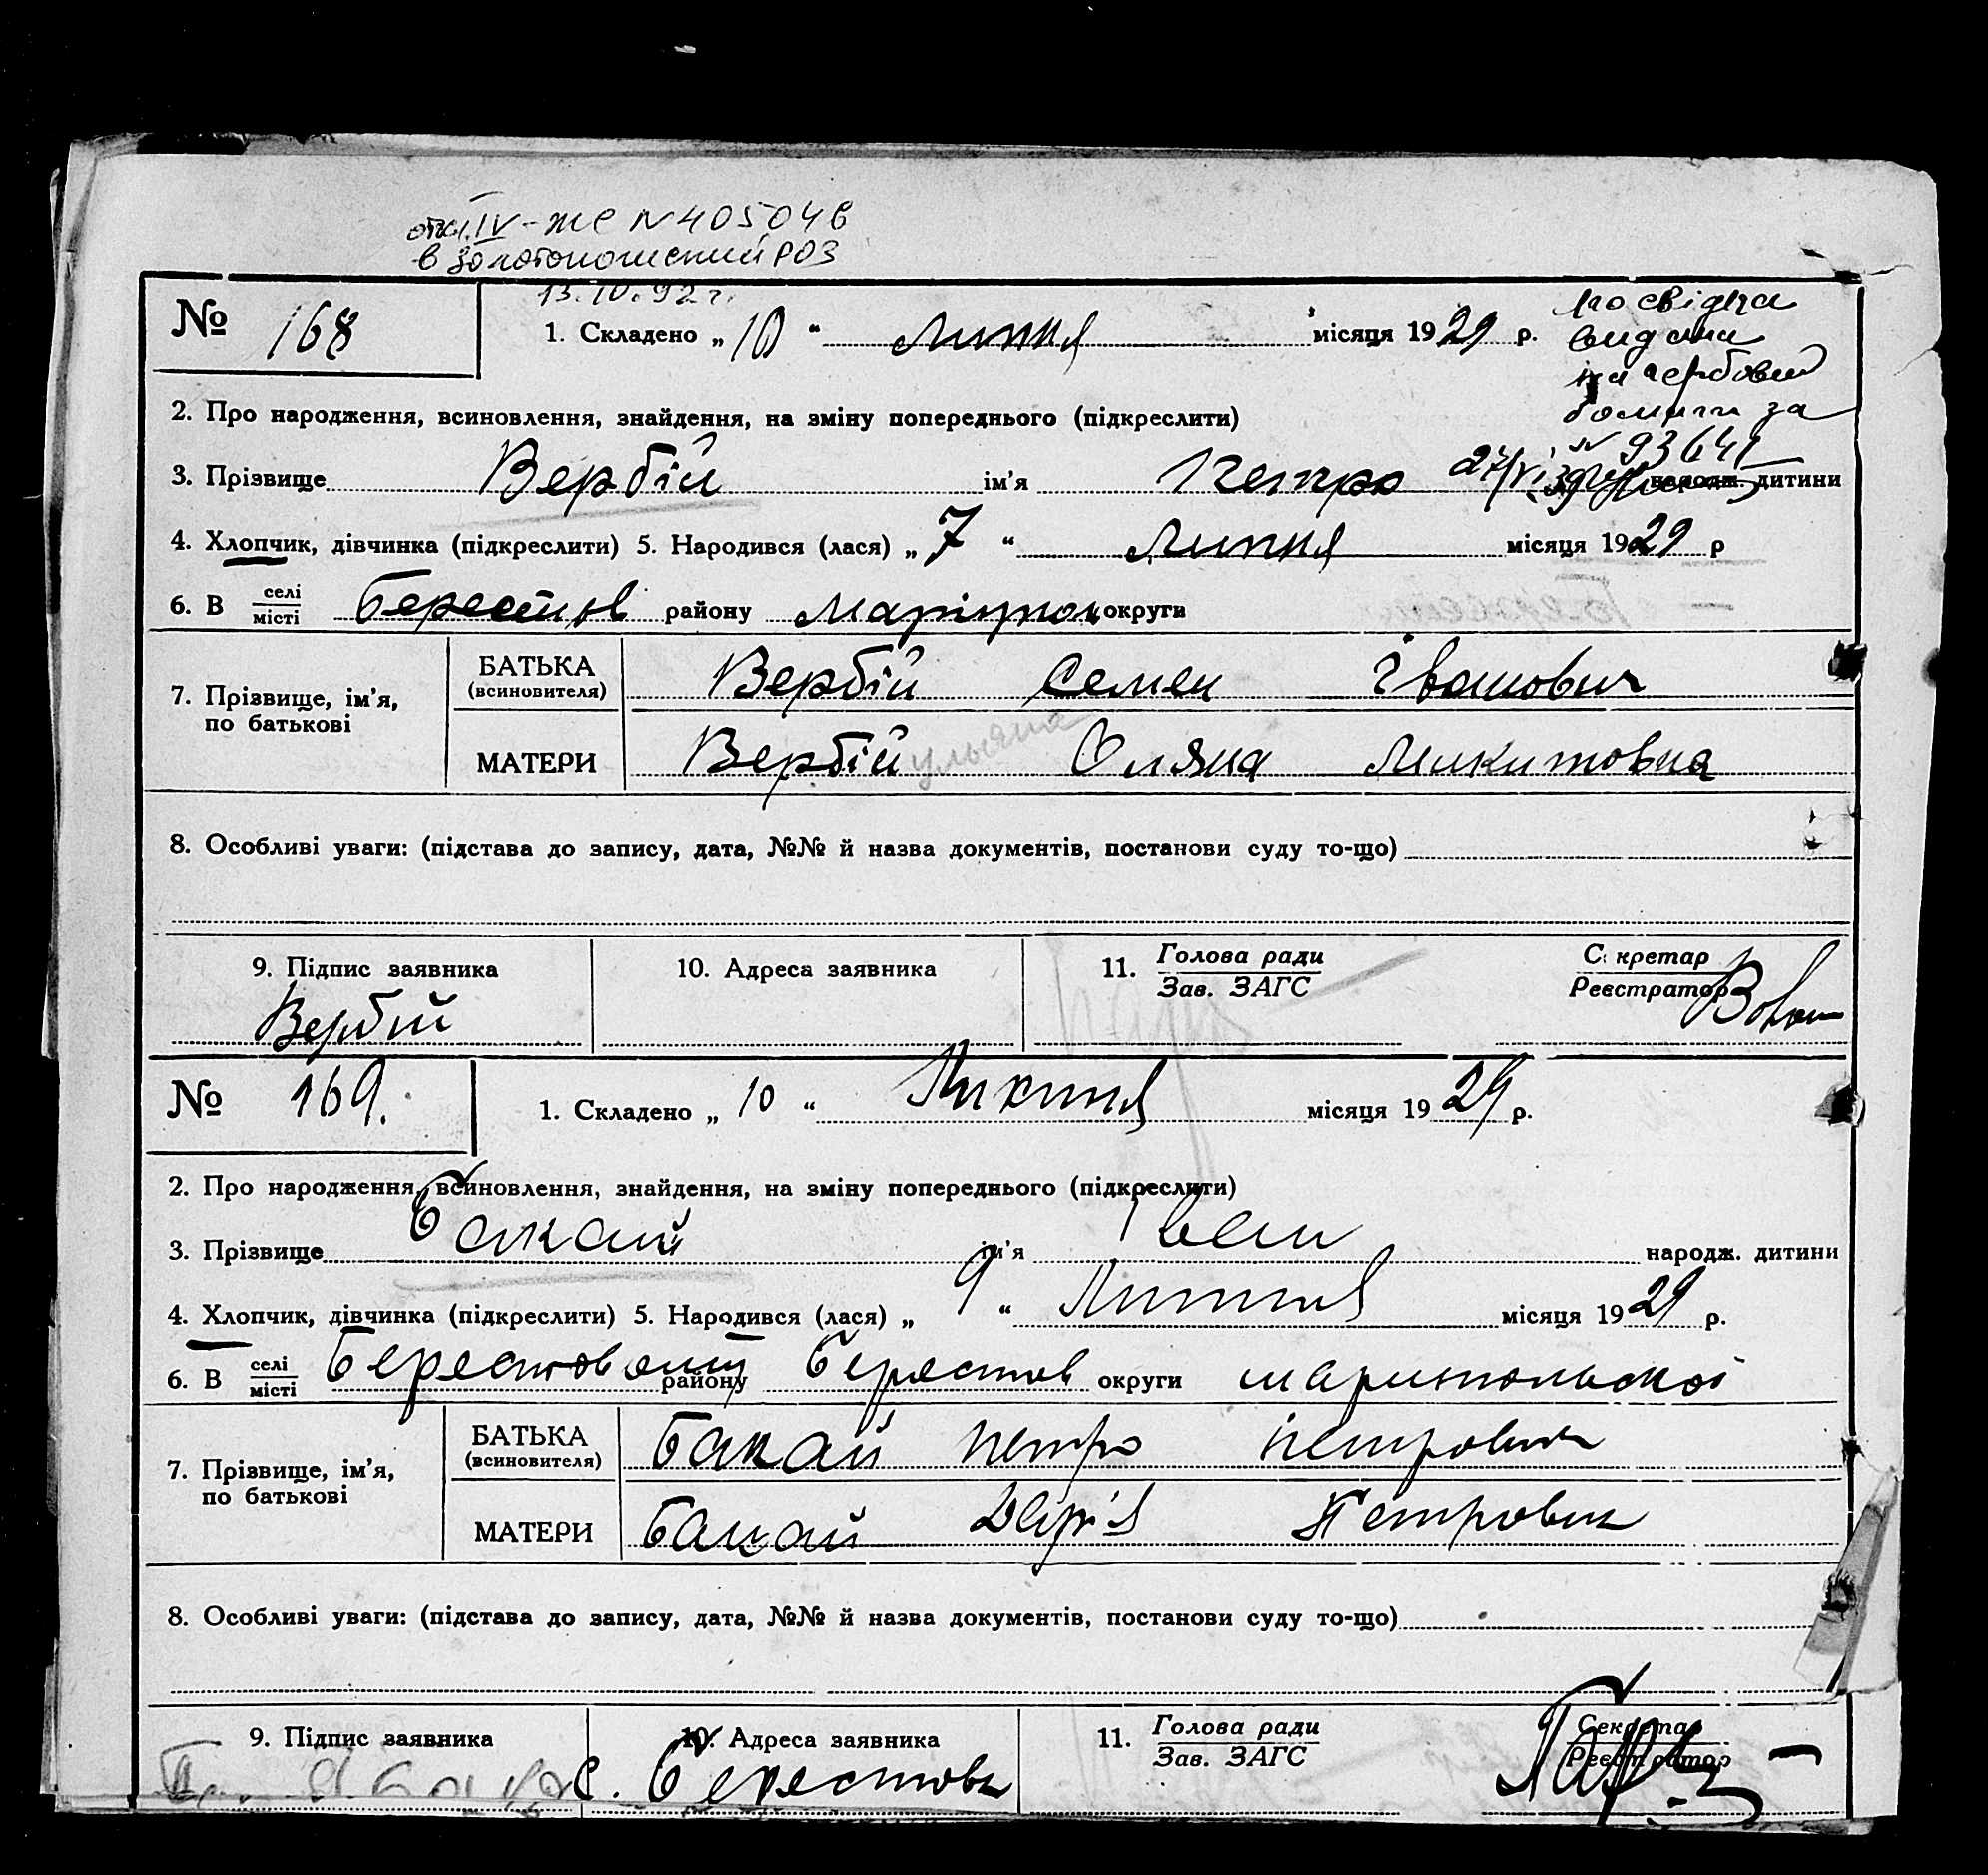 отв. IV-ЖС N 405046
в Золотоношский РОЗ
13.10.92 г.
№ 168
1. Складено „ 10 “ Липня місяця 1929 р.
посвідка
видана
на гербовий
бомагі за
№ 93641
2. Про народження, всиновлення, знайдення, на зміну попереднього (підкреслити)
3. Прізвище Вербій ім'я Петро народж. дитини
4. Хлопчик, дівчинка (підкреслити) 5. Народився (лася) „ 7 “ Липня місяця 1929 р
6. В селі
місті Берестов району Маріупол округи
7. Прізвище, ім'я,
по батькові
БАТЬКА
(всиновителя) Вербій Семен Іванович
ульяна
МАТЕРИ Вербій Оляна Микитовна
8. Особливі уваги: (підстава до запису, дата, №№ й назва документів, постанови суду то-що)
9. Підпис заявника
Вербій
10. Адреса заявника
11. Голова ради
Зав. ЗАГС
Секретар
Реєстратор
№ 169.
1. Складено „ 10 “ місяця 1929 р.
2. Про народження, всиновлення, знайдення, на зміну попереднього (підкреслити)
3. Прізвище Бакай ім'я Іван народж. дитини
4. Хлопчик, дівчинка (підкреслити) 5. Народився (лася) „ 9 “ Липня місяця 1929 р.
6. В селі
місті Берестовому району Берестов округи маріупольскої
7. Прізвище, ім'я,
по батькові
БАТЬКА
(всиновителя) Бакай Петро Петрович
МАТЕРИ Бакай Дарія Петровна
8. Особливі уваги: (підстава до запису, дата, №№ й назва документів, постанови суду то-що)
9. Підпис заявника
10. Адреса заявника
с. Берестове
11. Голова ради
Зав. ЗАГС
Секретар
Реєстратор